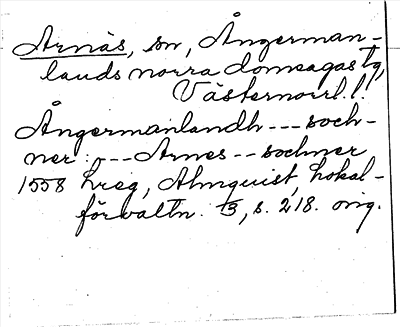 Arnäs, sn, Ångerman-
lands norra domsagas tg,
Västernorrl. l.
Ångermanlandh --- soch-
ner: --- Arnes -- sochner
1558 Hreg, Almquist, Lokal-
förvaltn. 13, s. 218. orig.